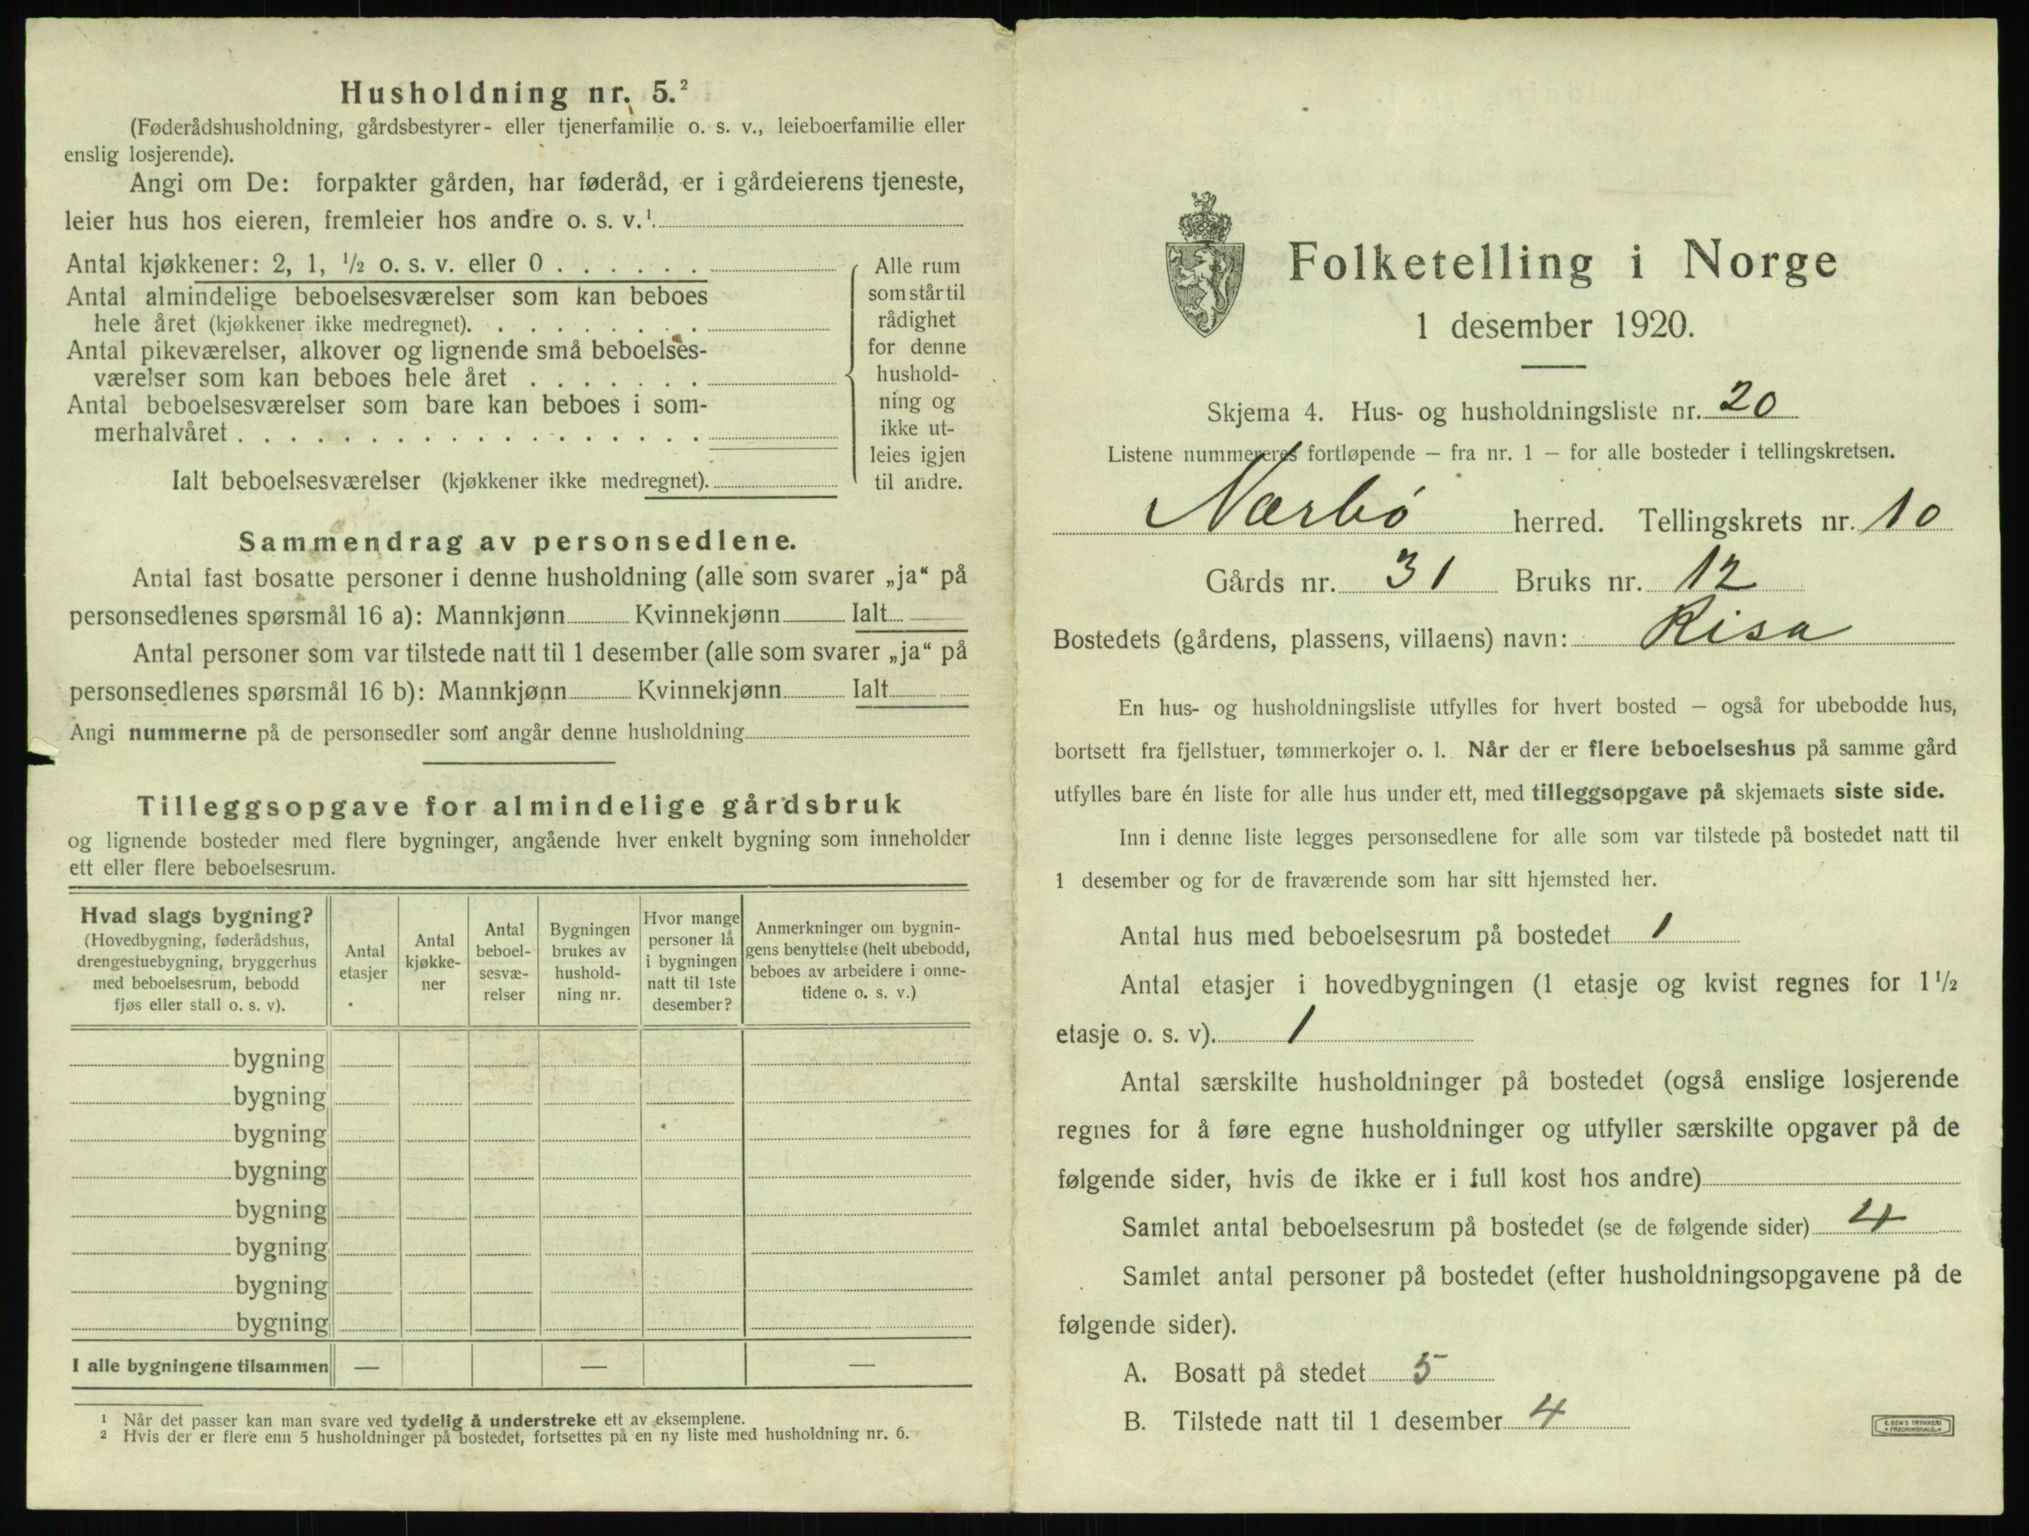 Husholdning nr. 5.²
(Føderådshusholdning, gårdsbestyrer- eller tjenerfamilie o. s. v., leieboerfamilie eller
enslig losjerende).
Angi om De: forpakter gården, har føderåd, er i gårdeierens tjeneste,
leier hus hos eieren, fremleier hos andre o. s. v.¹
Antal kjøkkener: 2, 1, ½ o. s. v. eller 0 . . . . . .
Antal almindelige beboelsesværelser som kan beboes
hele året (kjøkkener ikke medregnet). . . . . . . . .
Antal pikeværelser, alkover og lignende små beboelses-
værelser som kan beboes hele året . . . . . . .
Antal beboelsesværelser som bare kan beboes i som-
merhalvåret . . . . . . . . . . . . . . . . . .
Ialt beboelsesværelser (kjøkkener ikke medregnet).
Alle rum
som står til
rådighet
for denne
hushold-
ning og
ikke ut-
leies igjen
til andre.
Sammendrag av personsedlene.
Antal fast bosatte personer i denne husholdning (alle som svarer „ja“ på
personsedlenes spørsmål 16 a): Mannkjønn Kvinnekjønn Ialt
Antal personer som var tilstede natt til 1 desember (alle som svarer „ja“ på
personsedlenes spørsmål 16 b): Mannkjønn Kvinnekjønn Ialt
Angi nummerne på de personsedler som angår denne husholdning
Tilleggsopgave for almindelige gårdsbruk
og lignende bosteder med flere bygninger, angående hver enkelt bygning som inneholder
ett eller flere beboelsesrum.
Hvad slags bygning?
(Hovedbygning, føderådshus,
drengestuebygning, bryggerhus
med beboelsesrum, bebodd
fjøs eller stall o. s. v).
Antal
etasjer
Antal
kjøkke-
ner
Antal
beboel-
sesvæ-
relser
Bygningen
brukes av
hushold-
ning nr.
Hvor mange
personer lå
i bygningen
natt til 1ste
desember?
Anmerkninger om bygnin-
gens benyttelse (helt ubebodd,
beboes av arbeidere i onne-
tidene o. s. v.)
bygning
bygning
bygning
bygning
bygning
bygning
bygning
bygning
I alle bygningene tilsammen — — —
¹ Når det passer kan man svare ved tydelig å understreke ett av eksemplene.
² Hvis der er flere enn 5 husholdninger på bostedet, fortsettes på en ny liste med husholdning nr. 6.
Folketelling i Norge
1 desember 1920.
Skjema 4. Hus- og husholdningsliste nr. 20
Listene nummereres fortløpende – fra nr. 1 – for alle bosteder i tellingskretsen.
Nærbö herred. Tellingskrets nr. 10
Gårds nr. 31 Bruks nr. 12
Bostedets (gårdens, plassens, villaens) navn: Risa
En hus- og husholdningsliste utfylles for hvert bosted – også for ubebodde hus,
bortsett fra fjellstuer, tømmerkojer o. l. Når der er flere beboelseshus på samme gård
utfylles bare én liste for alle hus under ett, med tilleggsopgave på skjemaets siste side.
Inn i denne liste legges personsedlene for alle som var tilstede på bostedet natt til
1 desember og for de fraværende som har sitt hjemsted her.
Antal hus med beboelsesrum på bostedet 1
Antal etasjer i hovedbygningen (1 etasje og kvist regnes for 1½
etasje o. s. v). 1
Antal særskilte husholdninger på bostedet (også enslige losjerende
regnes for å føre egne husholdninger og utfyller særskilte opgaver på de
følgende sider, hvis de ikke er i full kost hos andre)
Samlet antal beboelsesrum på bostedet (se de følgende sider) 4
Samlet antal personer på bostedet (efter husholdningsopgavene på de
følgende sider).
A. Bosatt på stedet 5
B. Tilstede natt til 1 desember 4
E. SEM'S TRYKKERI
FREDRIKSHALD